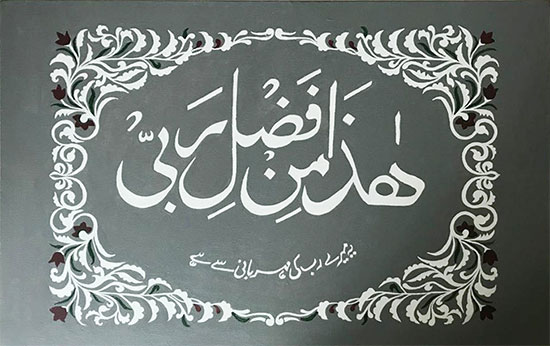 هٰذَا مِنْ فَضْلِ رَبِّىْ
یہ میرے رب کی مہربانی سے ہے